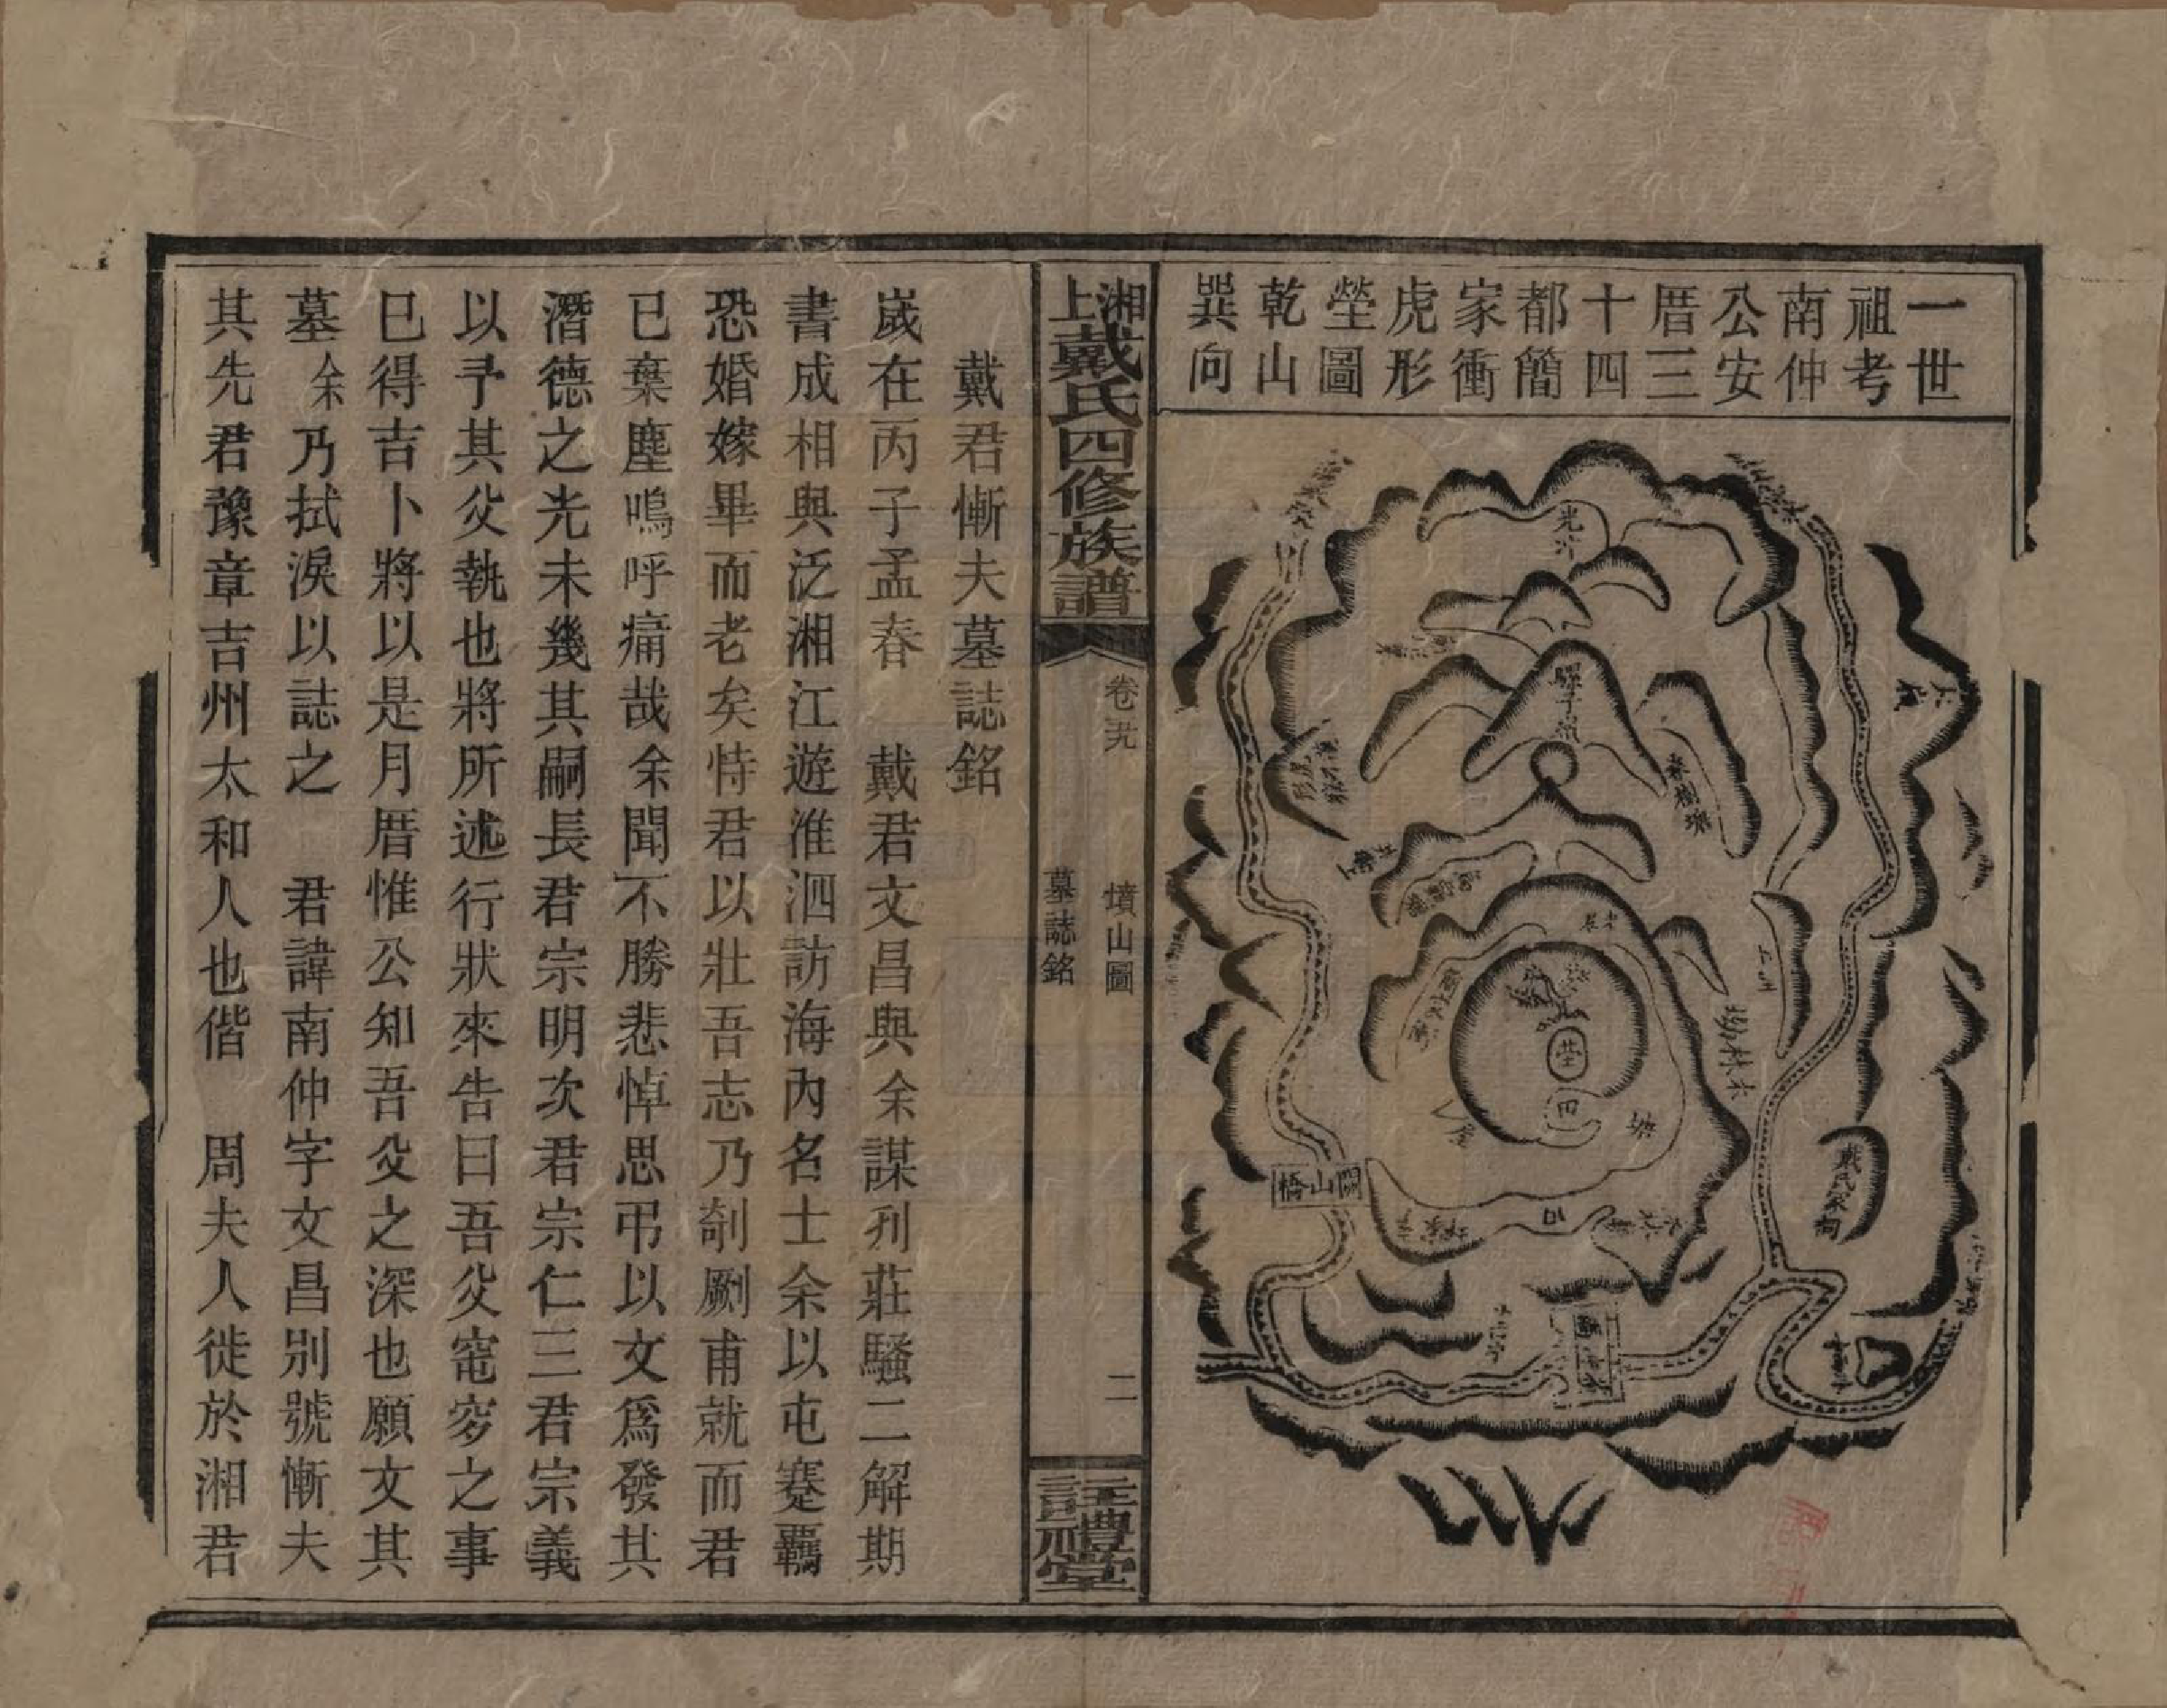 一世
祖考
南仲
公安
厝三
十四
都簡
家衝
虎形
塋圖
乾山
巽向
塋
田
塘
關山橋
戴氏家祠
上湘戴氏四修族譜
卷卅九
墳山圖
墓誌銘
二
註禮堂
戴君慚夫墓誌銘
歲在丙子孟春 戴君文昌與余謀刋莊騷二解期
書成相與泛湘江遊淮泗訪海內名士余以屯蹇羈
恐婚嫁畢而老矣恃君以壯吾志乃剞劂甫就而君
已棄塵嗚呼痛哉余聞不勝悲悼思弔以文爲發其
潛德之光未幾其嗣長君宗明次君宗仁三君宗義
以予其父執也將所述行狀來告曰吾父窀穸之事
巳得吉卜將以是月厝惟公知吾父之深也願文其
墓余乃拭淚以誌之 君諱南仲字文昌別號慚夫
其先君豫章吉州太和人也偕 周夫人徙於湘君